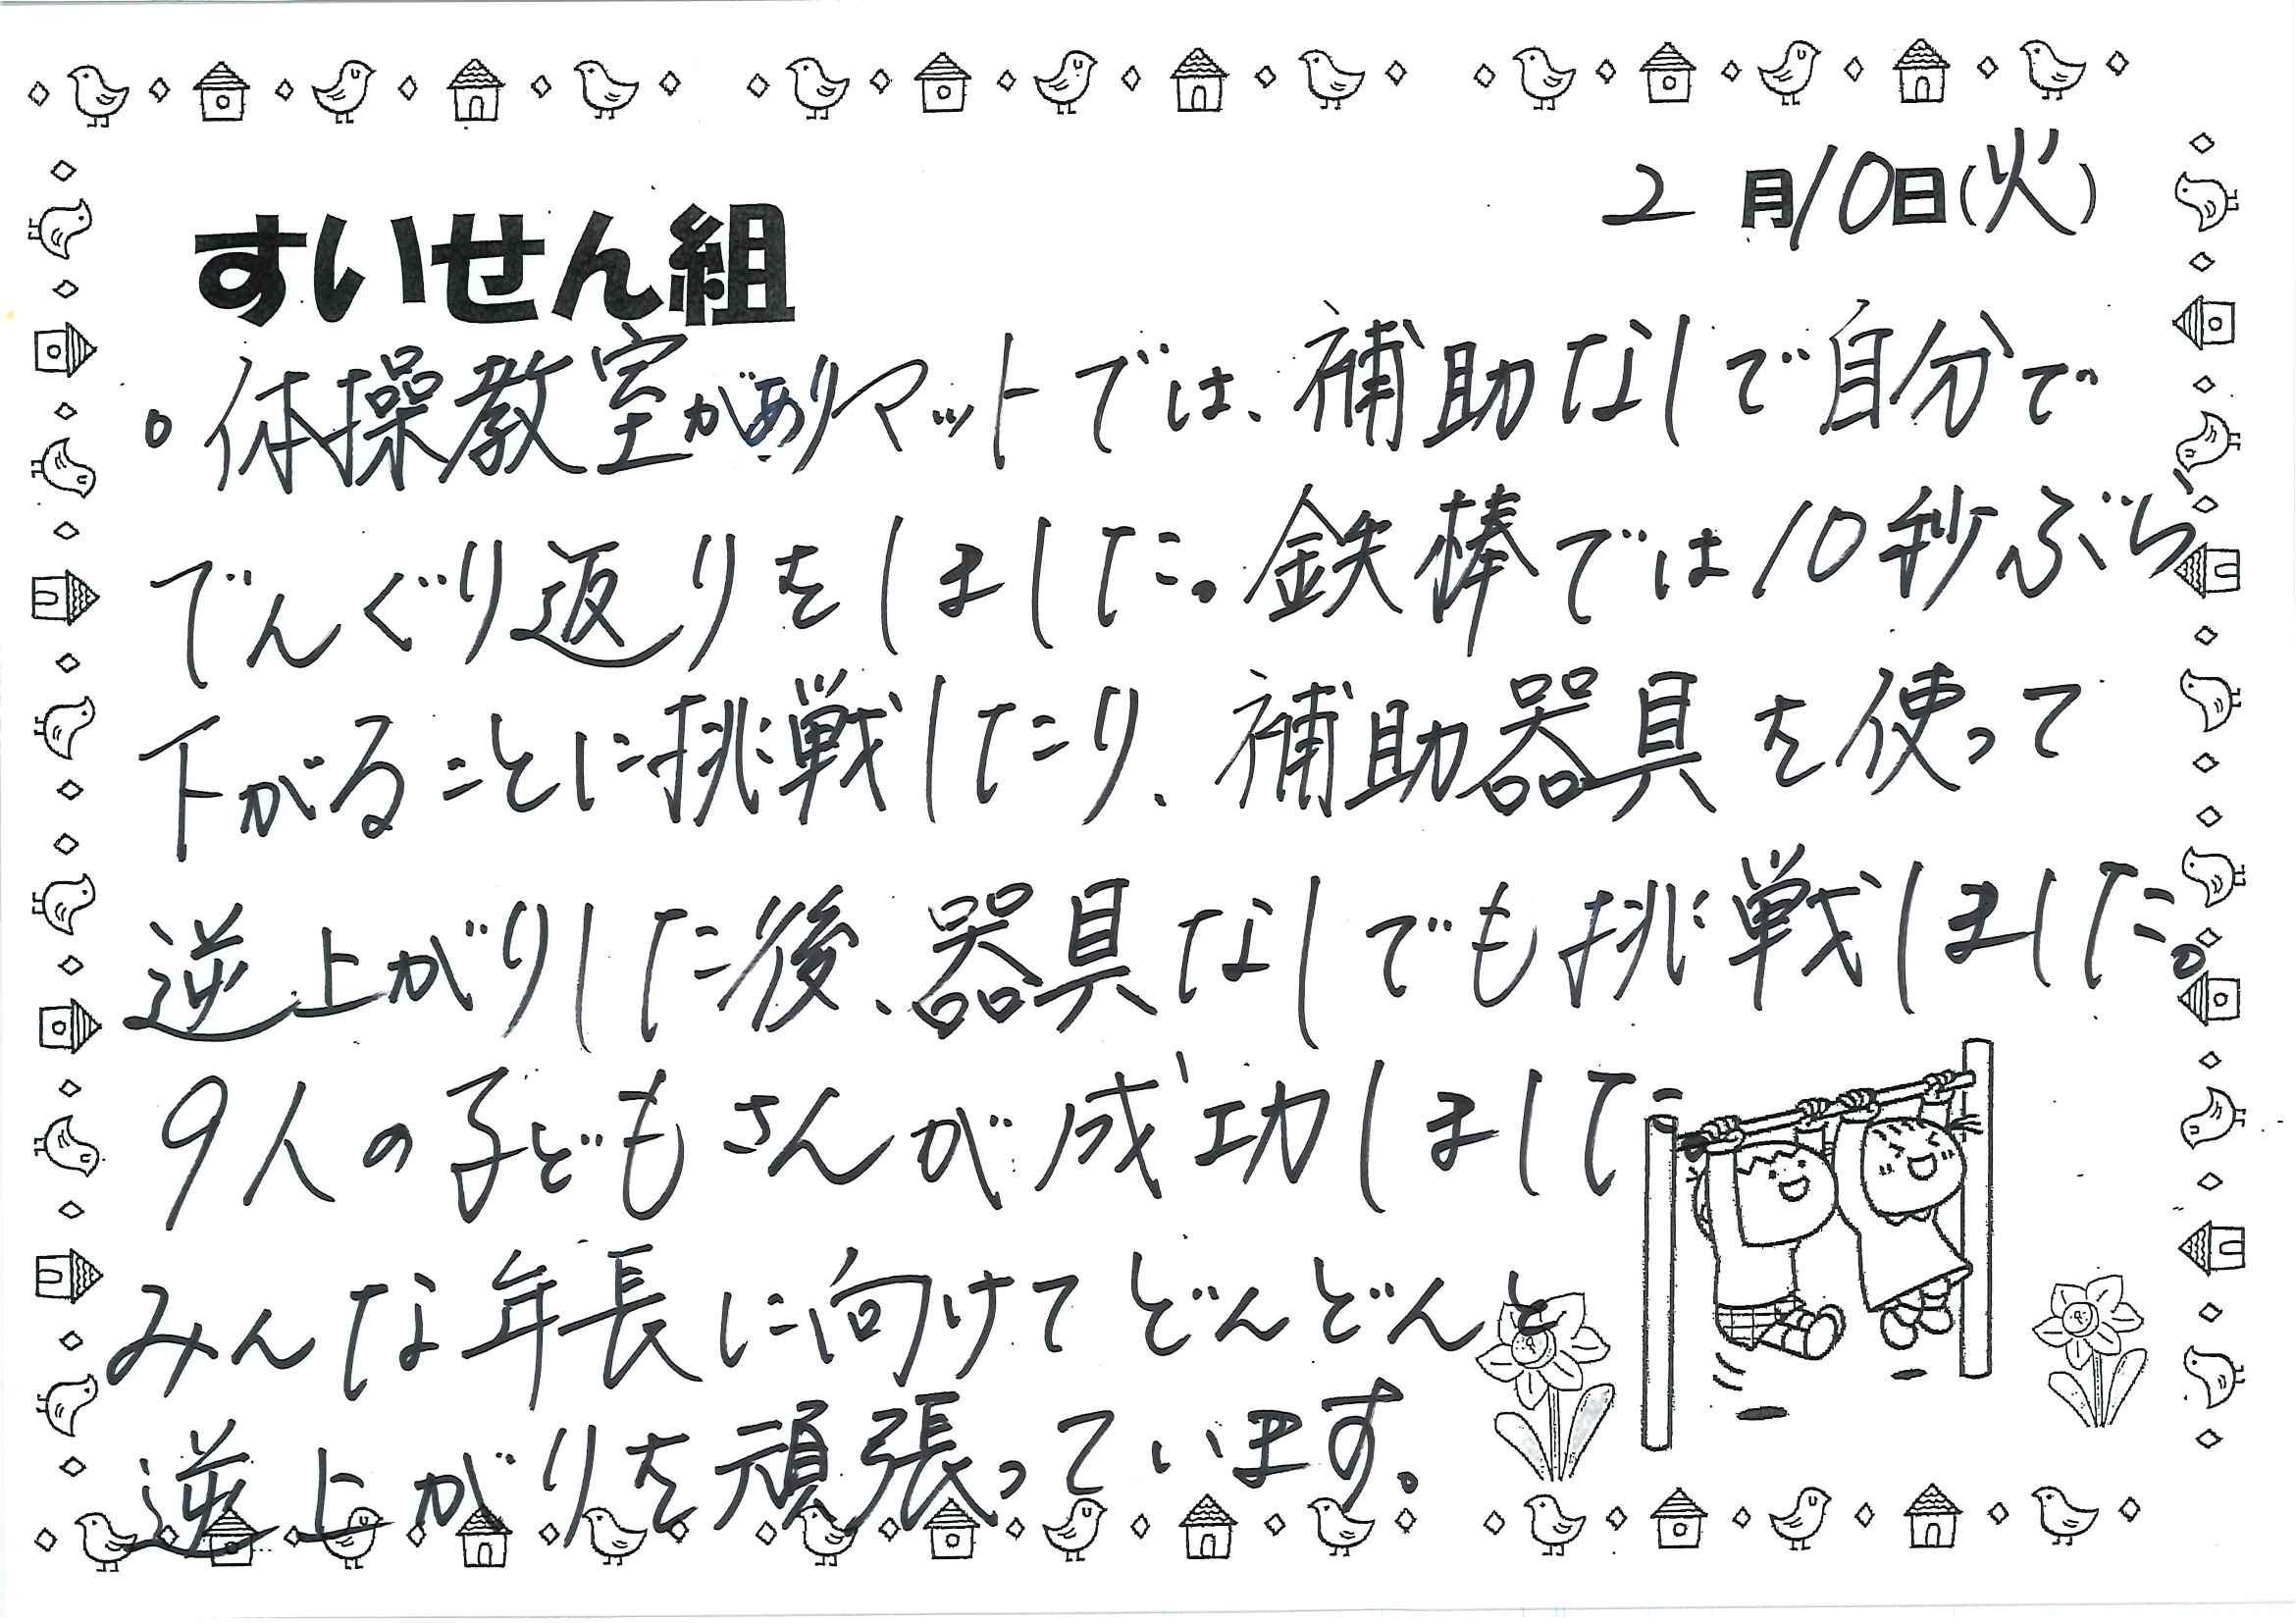 2月10日(火)
すいせん組
。体操教室がありマットでは、補助なしで自分で
でんぐり返りをしました。鉄棒では10秒ぶら
下がることに挑戦したり、補助器具を使って
逆上がりした後、器具なしでも挑戦しました。
9人の子どもさんが成功しました
みんな年長に向けてどんどんと
逆上がりを頑張っています。